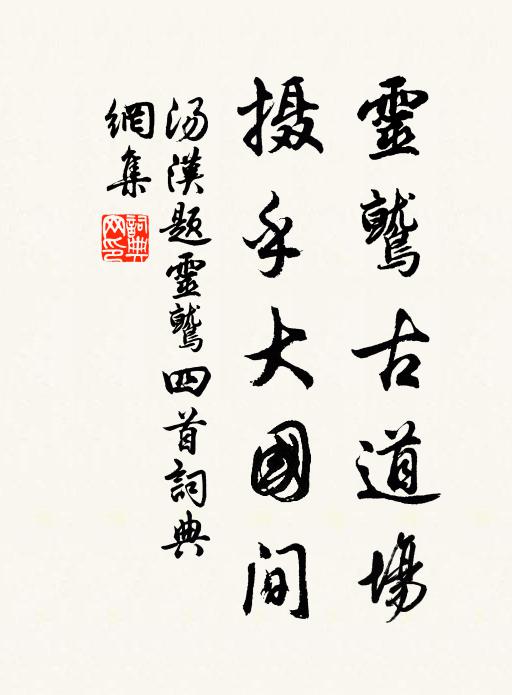 靈鷲古道場
摄乎大國间
汤漢题靈鷲四首詞典
網集
詞典
网印